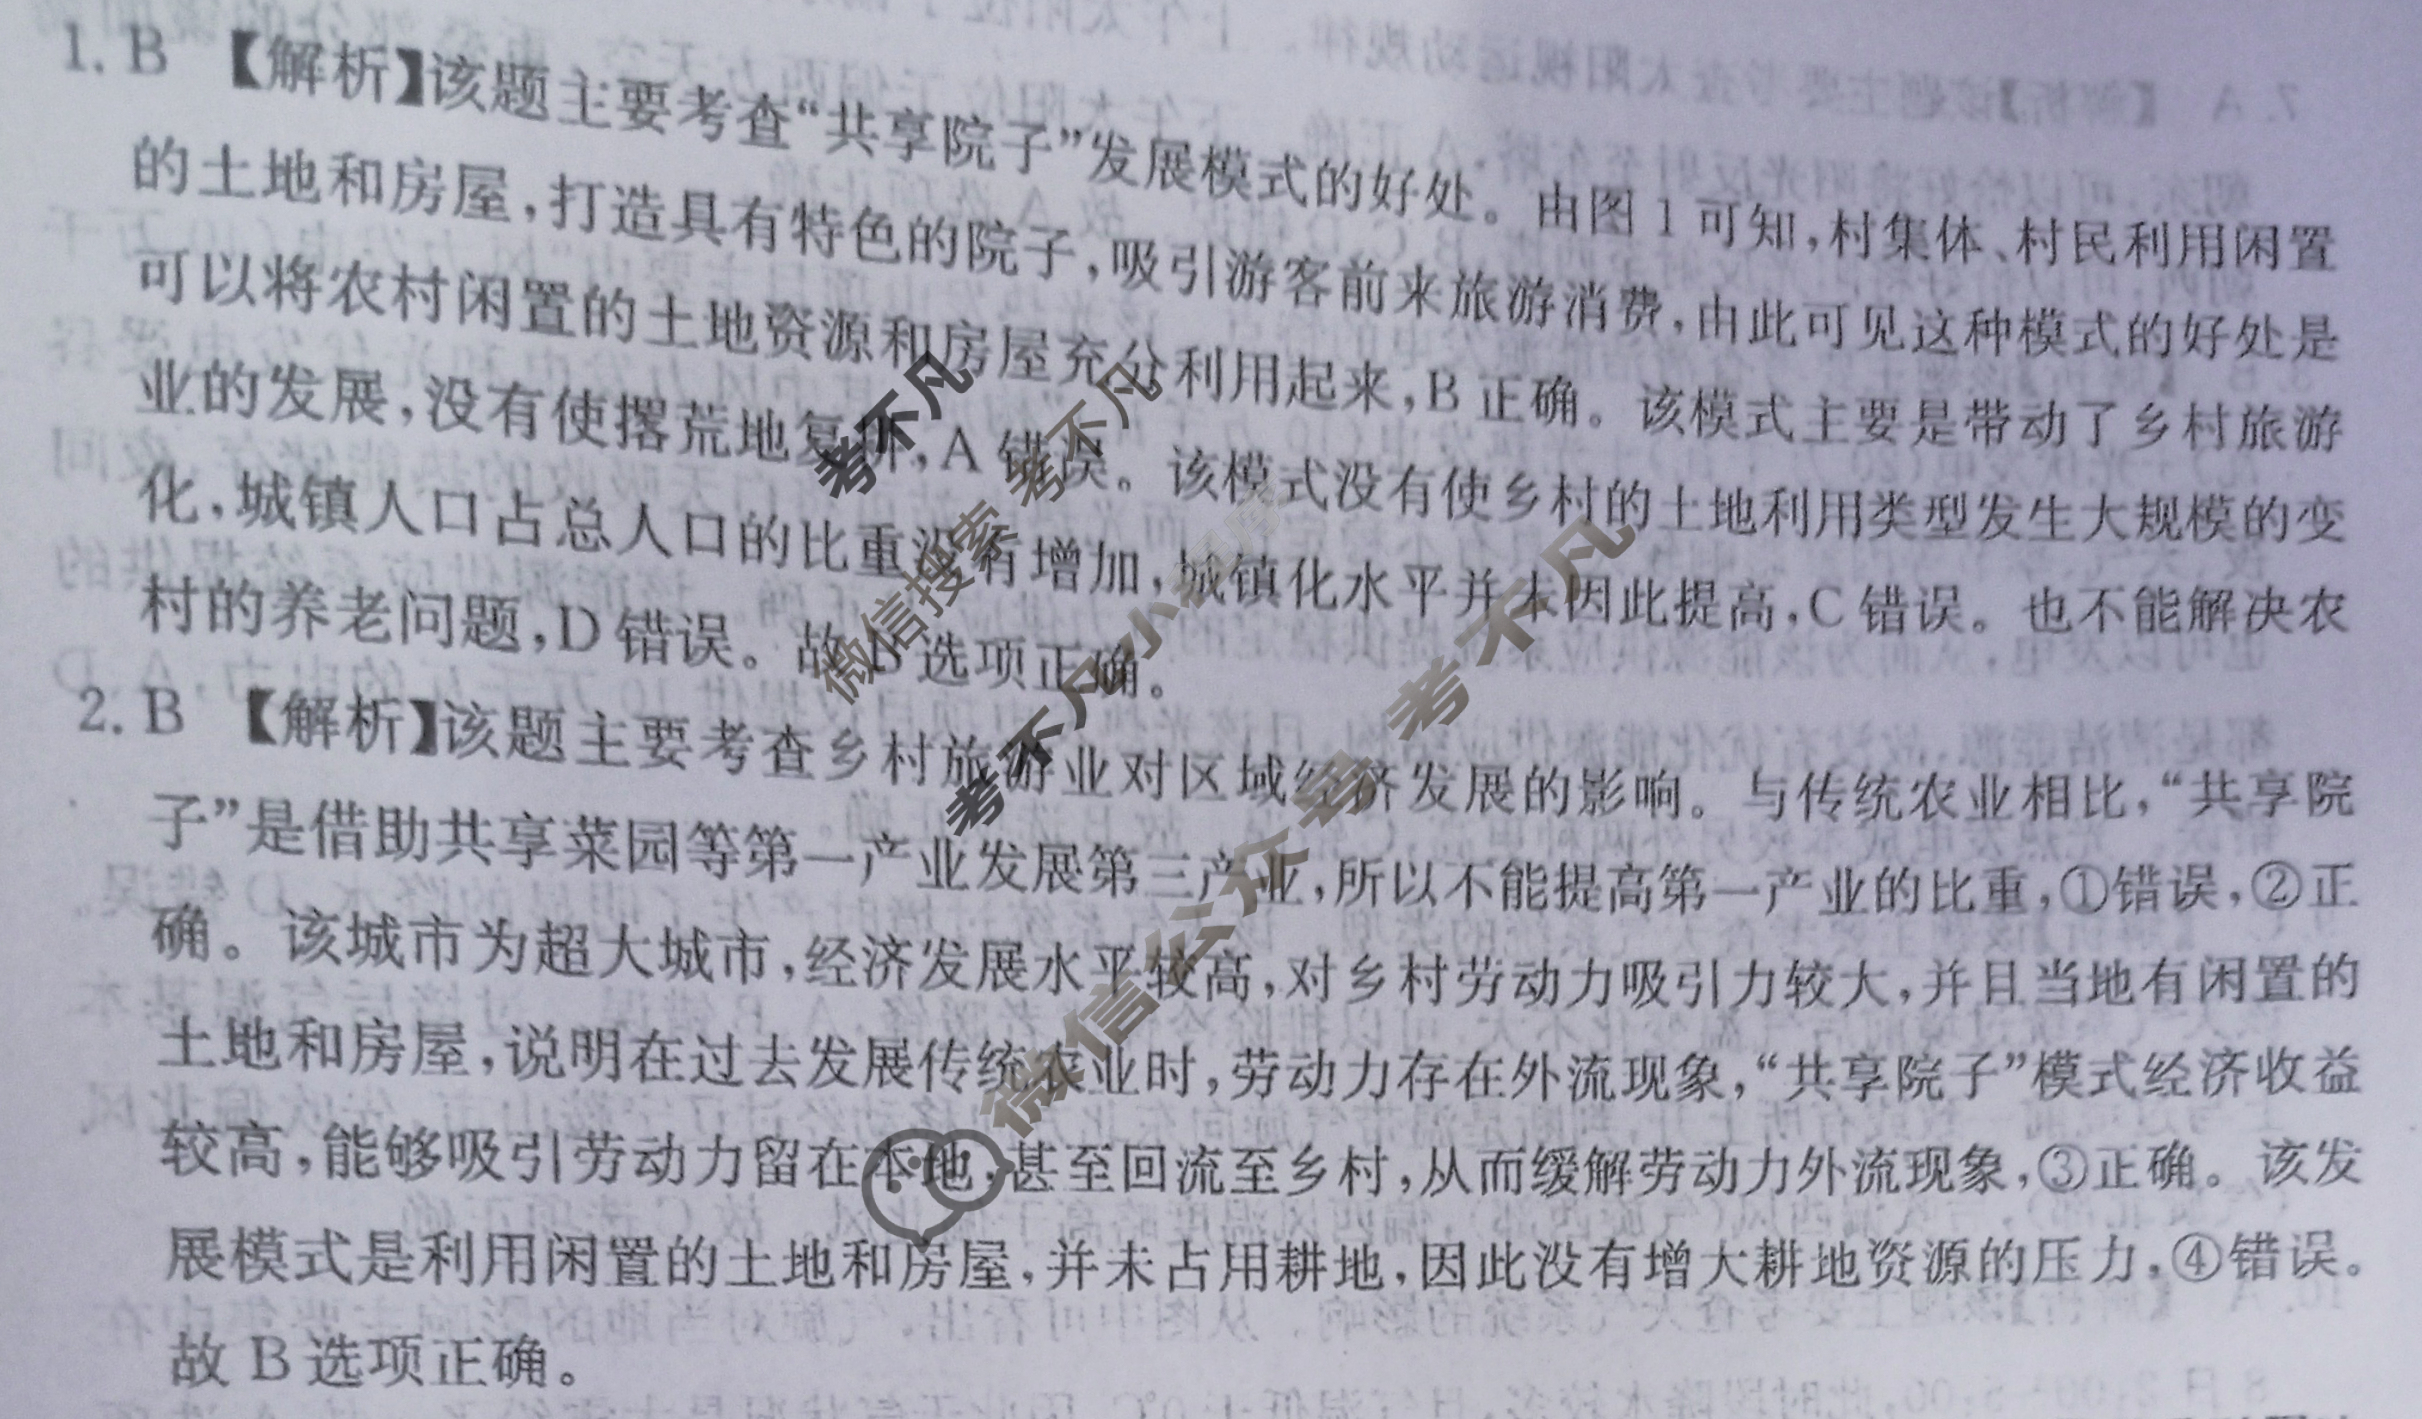 1. B 【解析】该题主要考查“共享院子”发展模式的好处。由图1可知,村集体、村民利用闲置
的土地和房屋,打造具有特色的院子,吸引游客前来旅游消费,由此可见这种模式的好处是
可以将农村闲置的土地资源和房屋充分利用起来,B正确。该模式主要是带动了乡村旅游
业的发展,没有使撂荒地复耕,A错误。该模式没有使乡村的土地利用类型发生大规模的变
化,城镇人口占总人口的比重没有增加,城镇化水平并未因此提高,C错误。也不能解决农
村的养老问题,D错误。故B选项正确。
2. B 【解析】该题主要考查乡村旅游业对区域经济发展的影响。与传统农业相比,“共享院
子”是借助共享菜园等第一产业发展第三产业,所以不能提高第一产业的比重,①错误,②正
确。该城市为超大城市,经济发展水平较高,对乡村劳动力吸引力较大,并且当地有闲置的
土地和房屋,说明在过去发展传统农业时,劳动力存在外流现象,“共享院子”模式经济收益
较高,能够吸引劳动力留在本地,甚至回流至乡村,从而缓解劳动力外流现象,③正确。该发
展模式是利用闲置的土地和房屋,并未占用耕地,因此没有增大耕地资源的压力,④错误。
故B选项正确。
考不凡
微信搜索 考不凡
考不凡小程序
微信公众号 考不凡